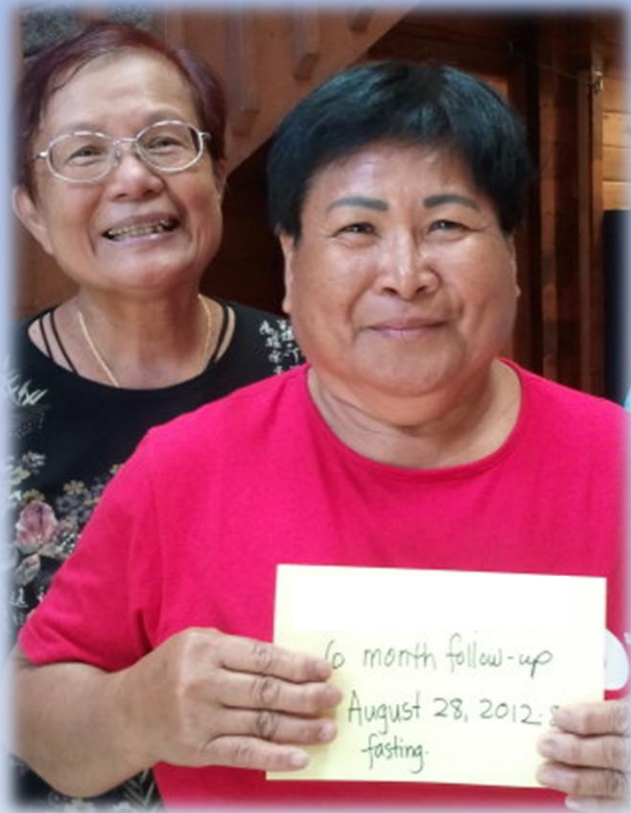 6 month follow-up
August 28, 2012.
fasting.